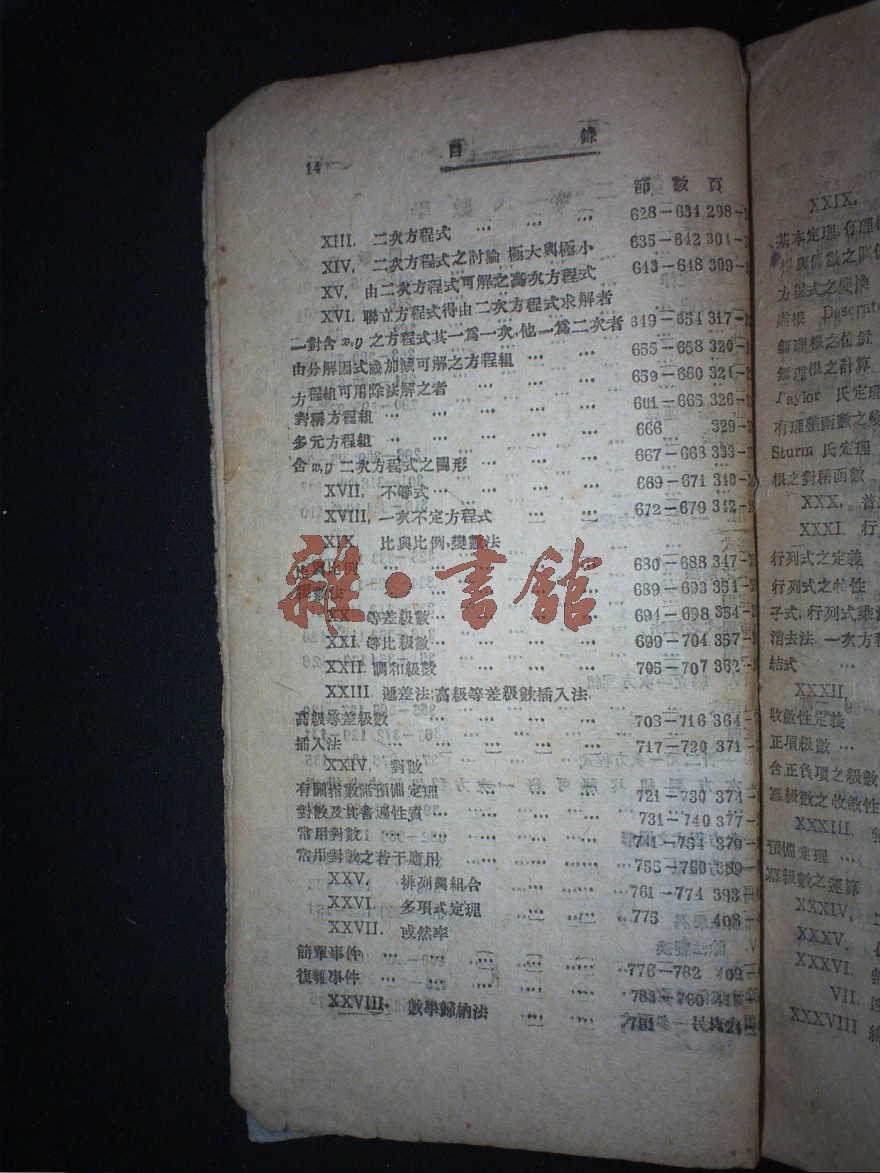 14 目 錄
節 數 頁
XIII. 二次方程式 … … … … 628-634 298-
XIV. 二次方程式之討論 極大與極小 635-642 301-
XV. 由二次方程式可解之高次方程式 643-648 309-
XVI. 聯立方程式得由二次方程式求解者
一對含x,y之方程式其一爲一次,他一爲二次者 649-654 317-
由分解因式或加減可解之方程組 … … 655-658 320-
方程組可用除法解之者 … … … 659-660 324-
對稱方程組 … … … … … 661-665 326-
多元方程組 … … … … … 666 329-
含x,y二次方程式之圖形 … … … 667-668 333-
XVII. 不等式 … … … … 669-671 340-
XVIII. 一次不定方程式 … … 672-679 342-
XIX. 比與比例,變數法
比與比例 … … … … … 680-688 347-
變數法 … … … … … 689-693 351-
XX. 等差級數 … … … … 694-698 354-
XXI. 等比級數 … … … … 699-704 357-
XXII. 調和級數 … … … … 705-707 362-
XXIII. 遞差法,高級等差級數插入法
高級等差級數 … … … … 708-716 364-
插入法 … … … … … 717-720 371-
XXIV. 對數
有關指數諸預備定理 … … … 721-730 374-
對數及其普遍性質 … … … 731-740 377-
常用對數 … … … … … 741-754 379-
常用對數之若干應用 … … … 755-760 389-
XXV. 排列與組合 … … … 761-774 393-
XXVI. 多項式定理 … … … 775 408-
XXVII. 或然率
簡單事件 … … … … … 776-782 409-
複雜事件 … … … … …
XXVIII. 數學歸納法 … … … 791
XXIX.
基本定理,有理
根與係數之關係
方程式之變換
虛根
無理根之位置
無理根之計算
Taylor 氏定理
有理整函數之
Sturm 氏定理
根之對稱函數
XXX.
XXXI. 行
行列式之定義
行列式之特性
子式,行列式乘
消去法 一次方程
結式 …
XXXII.
收斂性定義
正項級數 …
含正負項之級數
冪級數之收斂性
XXXIII.
預備定理 …
冪級數之運算
XXXIV.
XXXV.
XXXVI.
VII.
XXXVIII
雜·書館